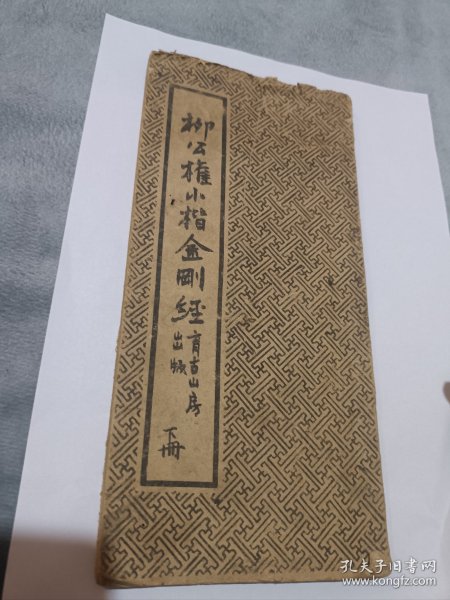 柳公權小楷金剛經
育古山房
出版
下冊
孔夫子旧书网
www.kongfz.com